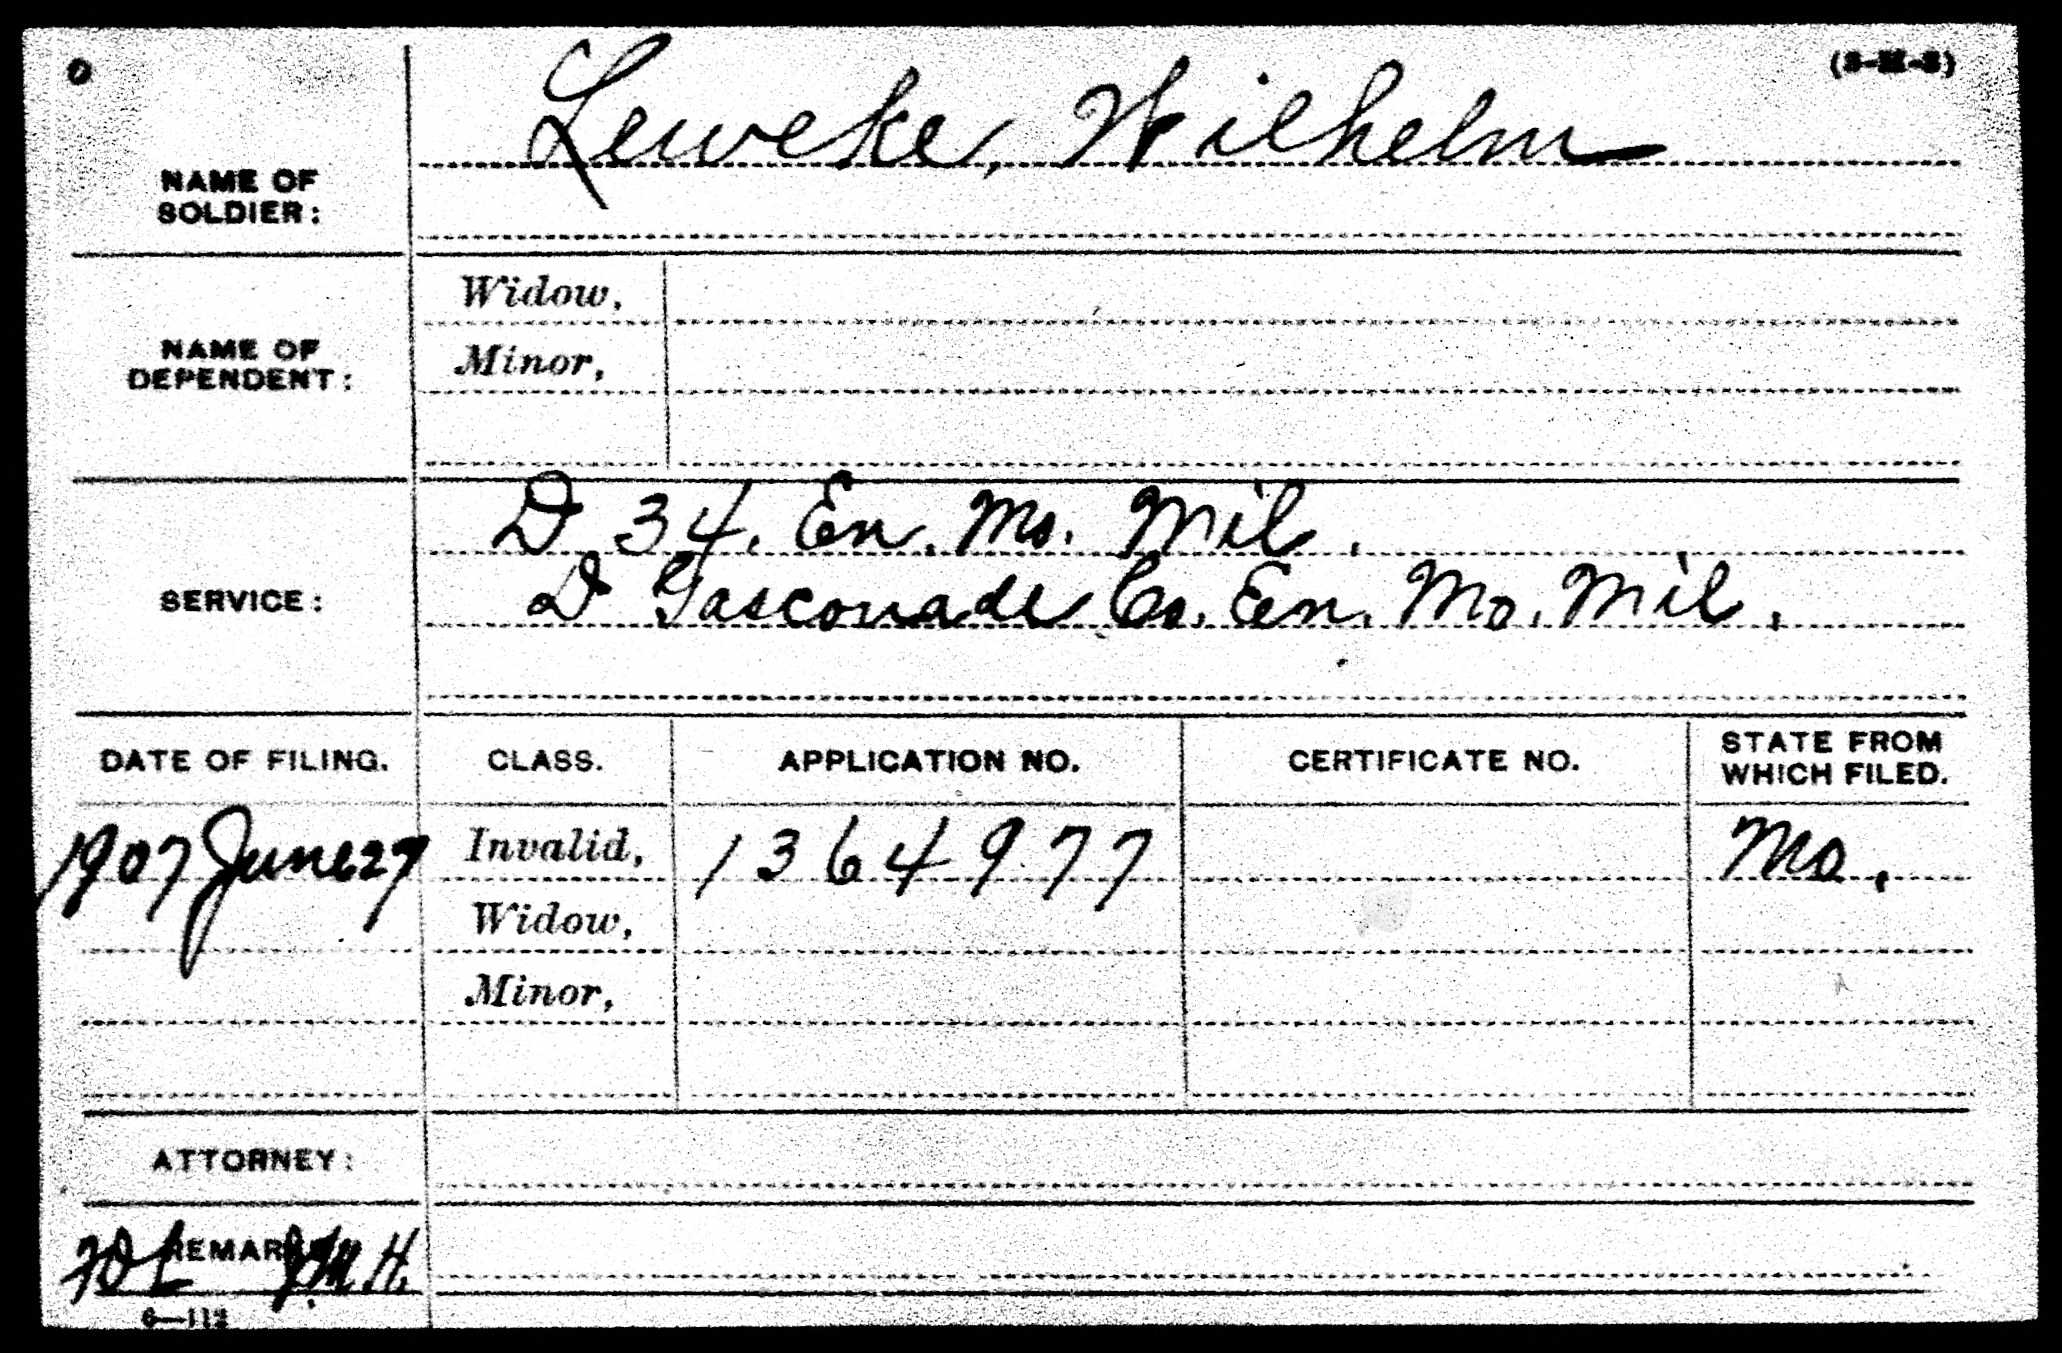 Leweke, Wilhelm
NAME OF
SOLDIER:
NAME OF
DEPENDENT:
Widow,
Minor,
SERVICE:
D 34. En. Mo. Mil.
D Gasconade Co. En. Mo. Mil.
DATE OF FILING.
CLASS.
APPLICATION NO.
CERTIFICATE NO.
STATE FROM
WHICH FILED.
1907 June 27
Invalid,
1364977
Mo.
Widow,
Minor,
ATTORNEY:
6—112